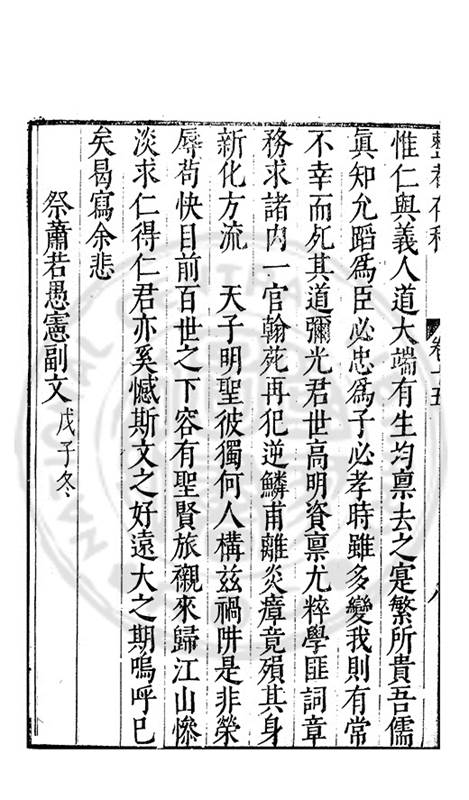 整菴存稿 卷十五 八
惟仁與義人道大端有生均稟去之寔繁所貴吾儒
眞知允蹈爲臣必忠爲子必孝時雖多變我則有常
不幸而死其道彌光君世高明資稟尤粹學匪詞章
務求諸內一官翰苑再犯逆鱗甫離炎瘴竟殞其身
新化方流　天子明聖彼獨何人構兹禍阱是非榮
辱苟快目前百世之下容有聖賢旅櫬來歸江山慘
淡求仁得仁君亦奚憾斯文之好遠大之期嗚呼已
矣曷寫余悲
祭蕭若愚憲副文 戊子冬